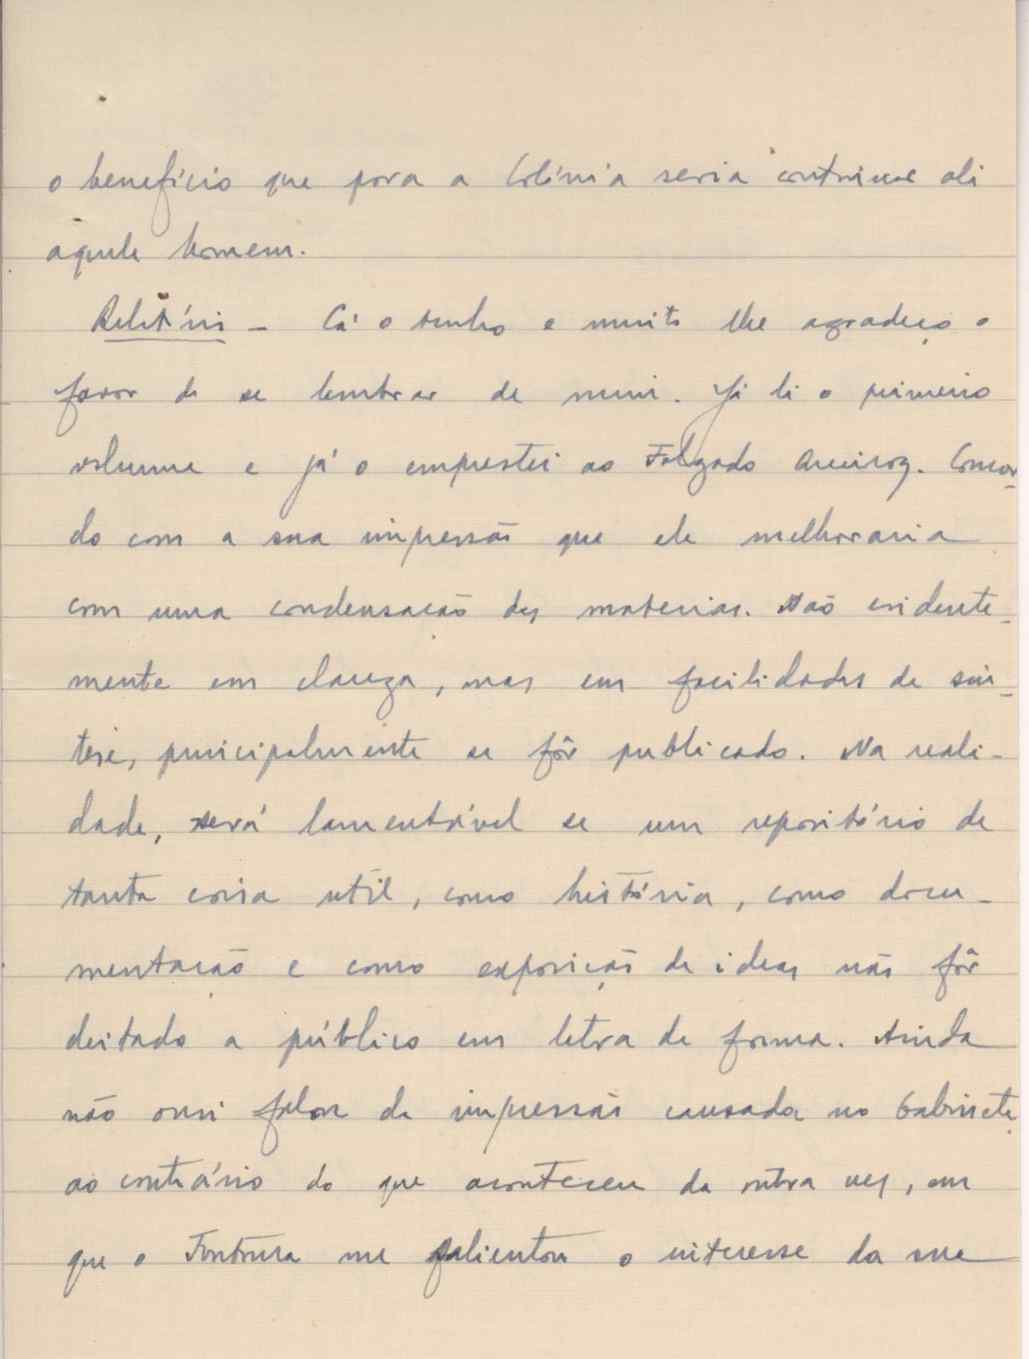 o benefício que para a Colónia seria continuar ali
aquele homem.
Relatório – Cá o tenho e muito lhe agradeço o
favor de se lembrar de mim. Já li o primeiro
volume e já o emprestei ao Folgado Queiroz. Concor-
do com a sua impressão que ele melhoraria
com uma condensação das matérias. Não evidente-
mente em clareza, mas em facilidades de sín-
tese, principalmente se fôr publicado. Na reali-
dade, será lamentável se um repositório de
tanta coisa util, como história, como docu-
mentação e como exposição de ideas não fôr
deitado a público em letra de forma. Ainda
não ouvi falar da impressão causada no Gabinete
ao contrário do que aconteceu da outra vez, em
que o Fontoura me salientou o interesse da sua